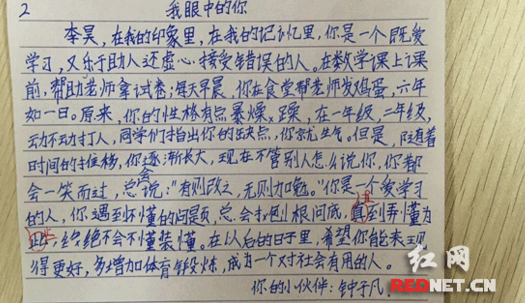 2 我眼中的你
李昊,在我的印象里,在我的记忆里,你是一个既爱
学习,又乐于助人还虚心接受错误的人。在数学课上课
前,帮助老师拿试卷;每天早晨,你在食堂帮老师发鸡蛋,六年
如一日。原来,你的性格有点暴燥、躁,在一年级,二年级,
动不动打人,同学们指出你的缺点,你就生气。但是,随着
时间的推移,你逐渐长大,现在不管别人怎么说你,你都
会一笑而过,总会说:"有则改之,无则加勉。"你是一个爱学习
的人,你遇到不懂的问题,总会打到根问底,直到弄懂为
止,绝不会不懂装懂。在以后的日子里,希望你能表现
得更好,多增加体育锻炼,成为一个对社会有用的人。
你的小伙伴:钟子凡
红网
REDNET.CN